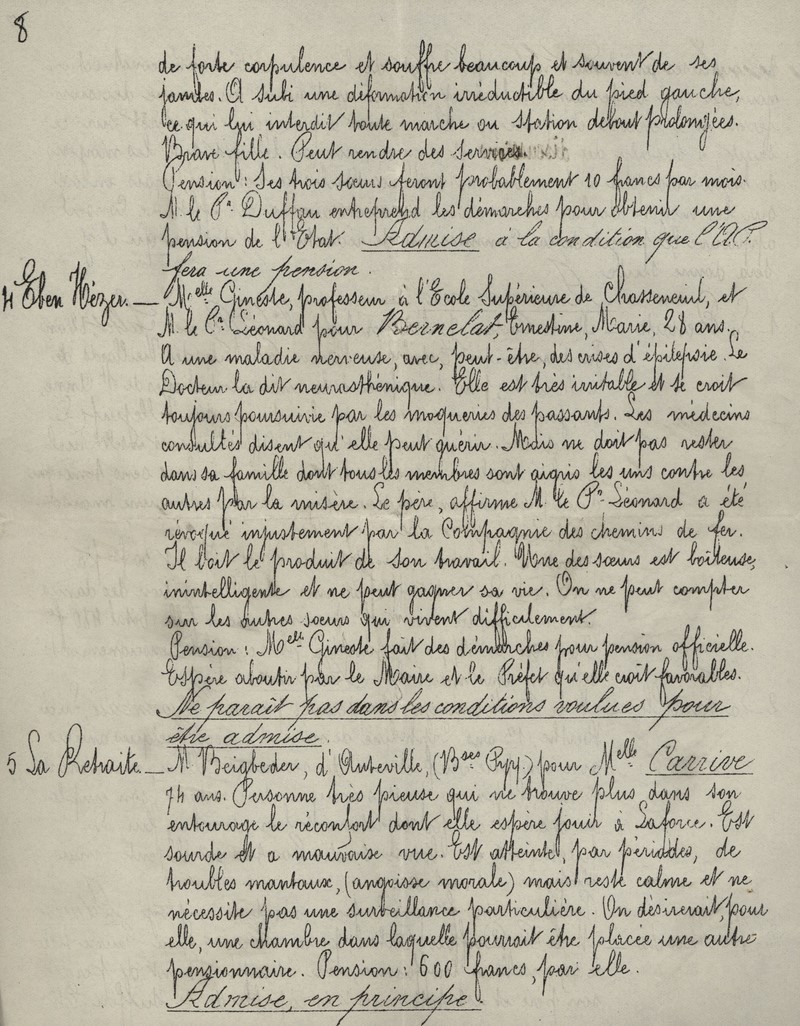 8
de forte corpulence et souffre beaucoup et souvent de ses
jambes. A subi une déformation irréductible du pied gauche,
ce qui lui interdit toute marche ou station debout prolongées.
Brave fille. Peut rendre des services.
Pension : Ses trois sœurs feront probablement 10 francs par mois.
M. le Pr. Duffau entreprend les démarches pour obtenir une
pension de l'Etat. Admise à la condition que l'A.P.
fera une pension.
4 Eben Hézer. — Melle Gineste, professeur à l'Ecole Supérieure de Chasseneuil, et
M. le Pr. Léonard pour Bernelat, Ernestine, Marie, 28 ans.
A une maladie nerveuse, avec, peut-être, des crises d'épilepsie. Le
Docteur la dit neurasthénique. Elle est très irritable et se croit
toujours poursuivie par les moqueries des passants. Les médecins
consultés disent qu'elle peut guérir. Mais ne doit pas rester
dans sa famille dont tous les membres sont aigris les uns contre les
autres par la misère. Le père, affirme M. le Pr. Léonard a été
révoqué injustement par la Compagnie des chemins de fer.
Il boit le produit de son travail. Une des sœurs est boiteuse,
inintelligente et ne peut gagner sa vie. On ne peut compter
sur les autres sœurs qui vivent difficilement.
Pension : Melle Gineste fait des démarches pour pension officielle.
Espère aboutir par le Maire et le Préfet qu'elle croit favorables.
Ne parait pas dans les conditions voulues pour
être admise.
5 La Retraite. — Mr Beigbeder, d'Auteville, (Bses Pyr.) pour Melle Carrive
74 ans. Personne très pieuse qui ne trouve plus dans son
entourage le réconfort dont elle espère jouir à Laforce. Est
sourde et a mauvaise vue. Est atteinte, par périodes, de
troubles mantaux, (angoisse morale) mais reste calme et ne
nécessite pas une surveillance particulière. On désirerait, pour
elle, une chambre dans laquelle pourrait être placée une autre
pensionnaire. Pension : 600 francs, par elle.
Admise, en principe.